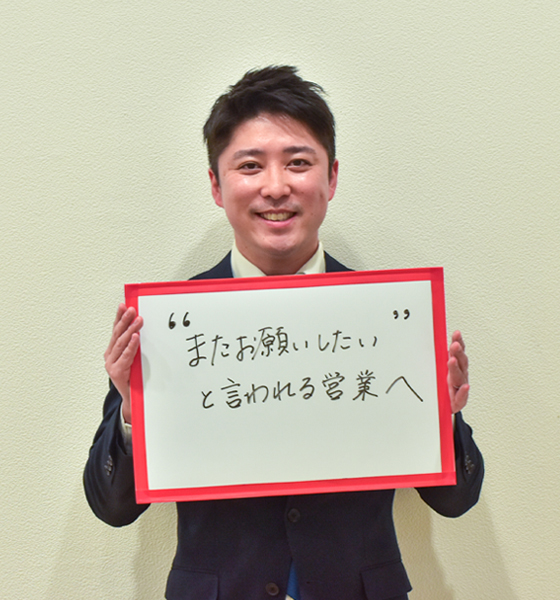 “またお願いしたい”
と言われる営業へ